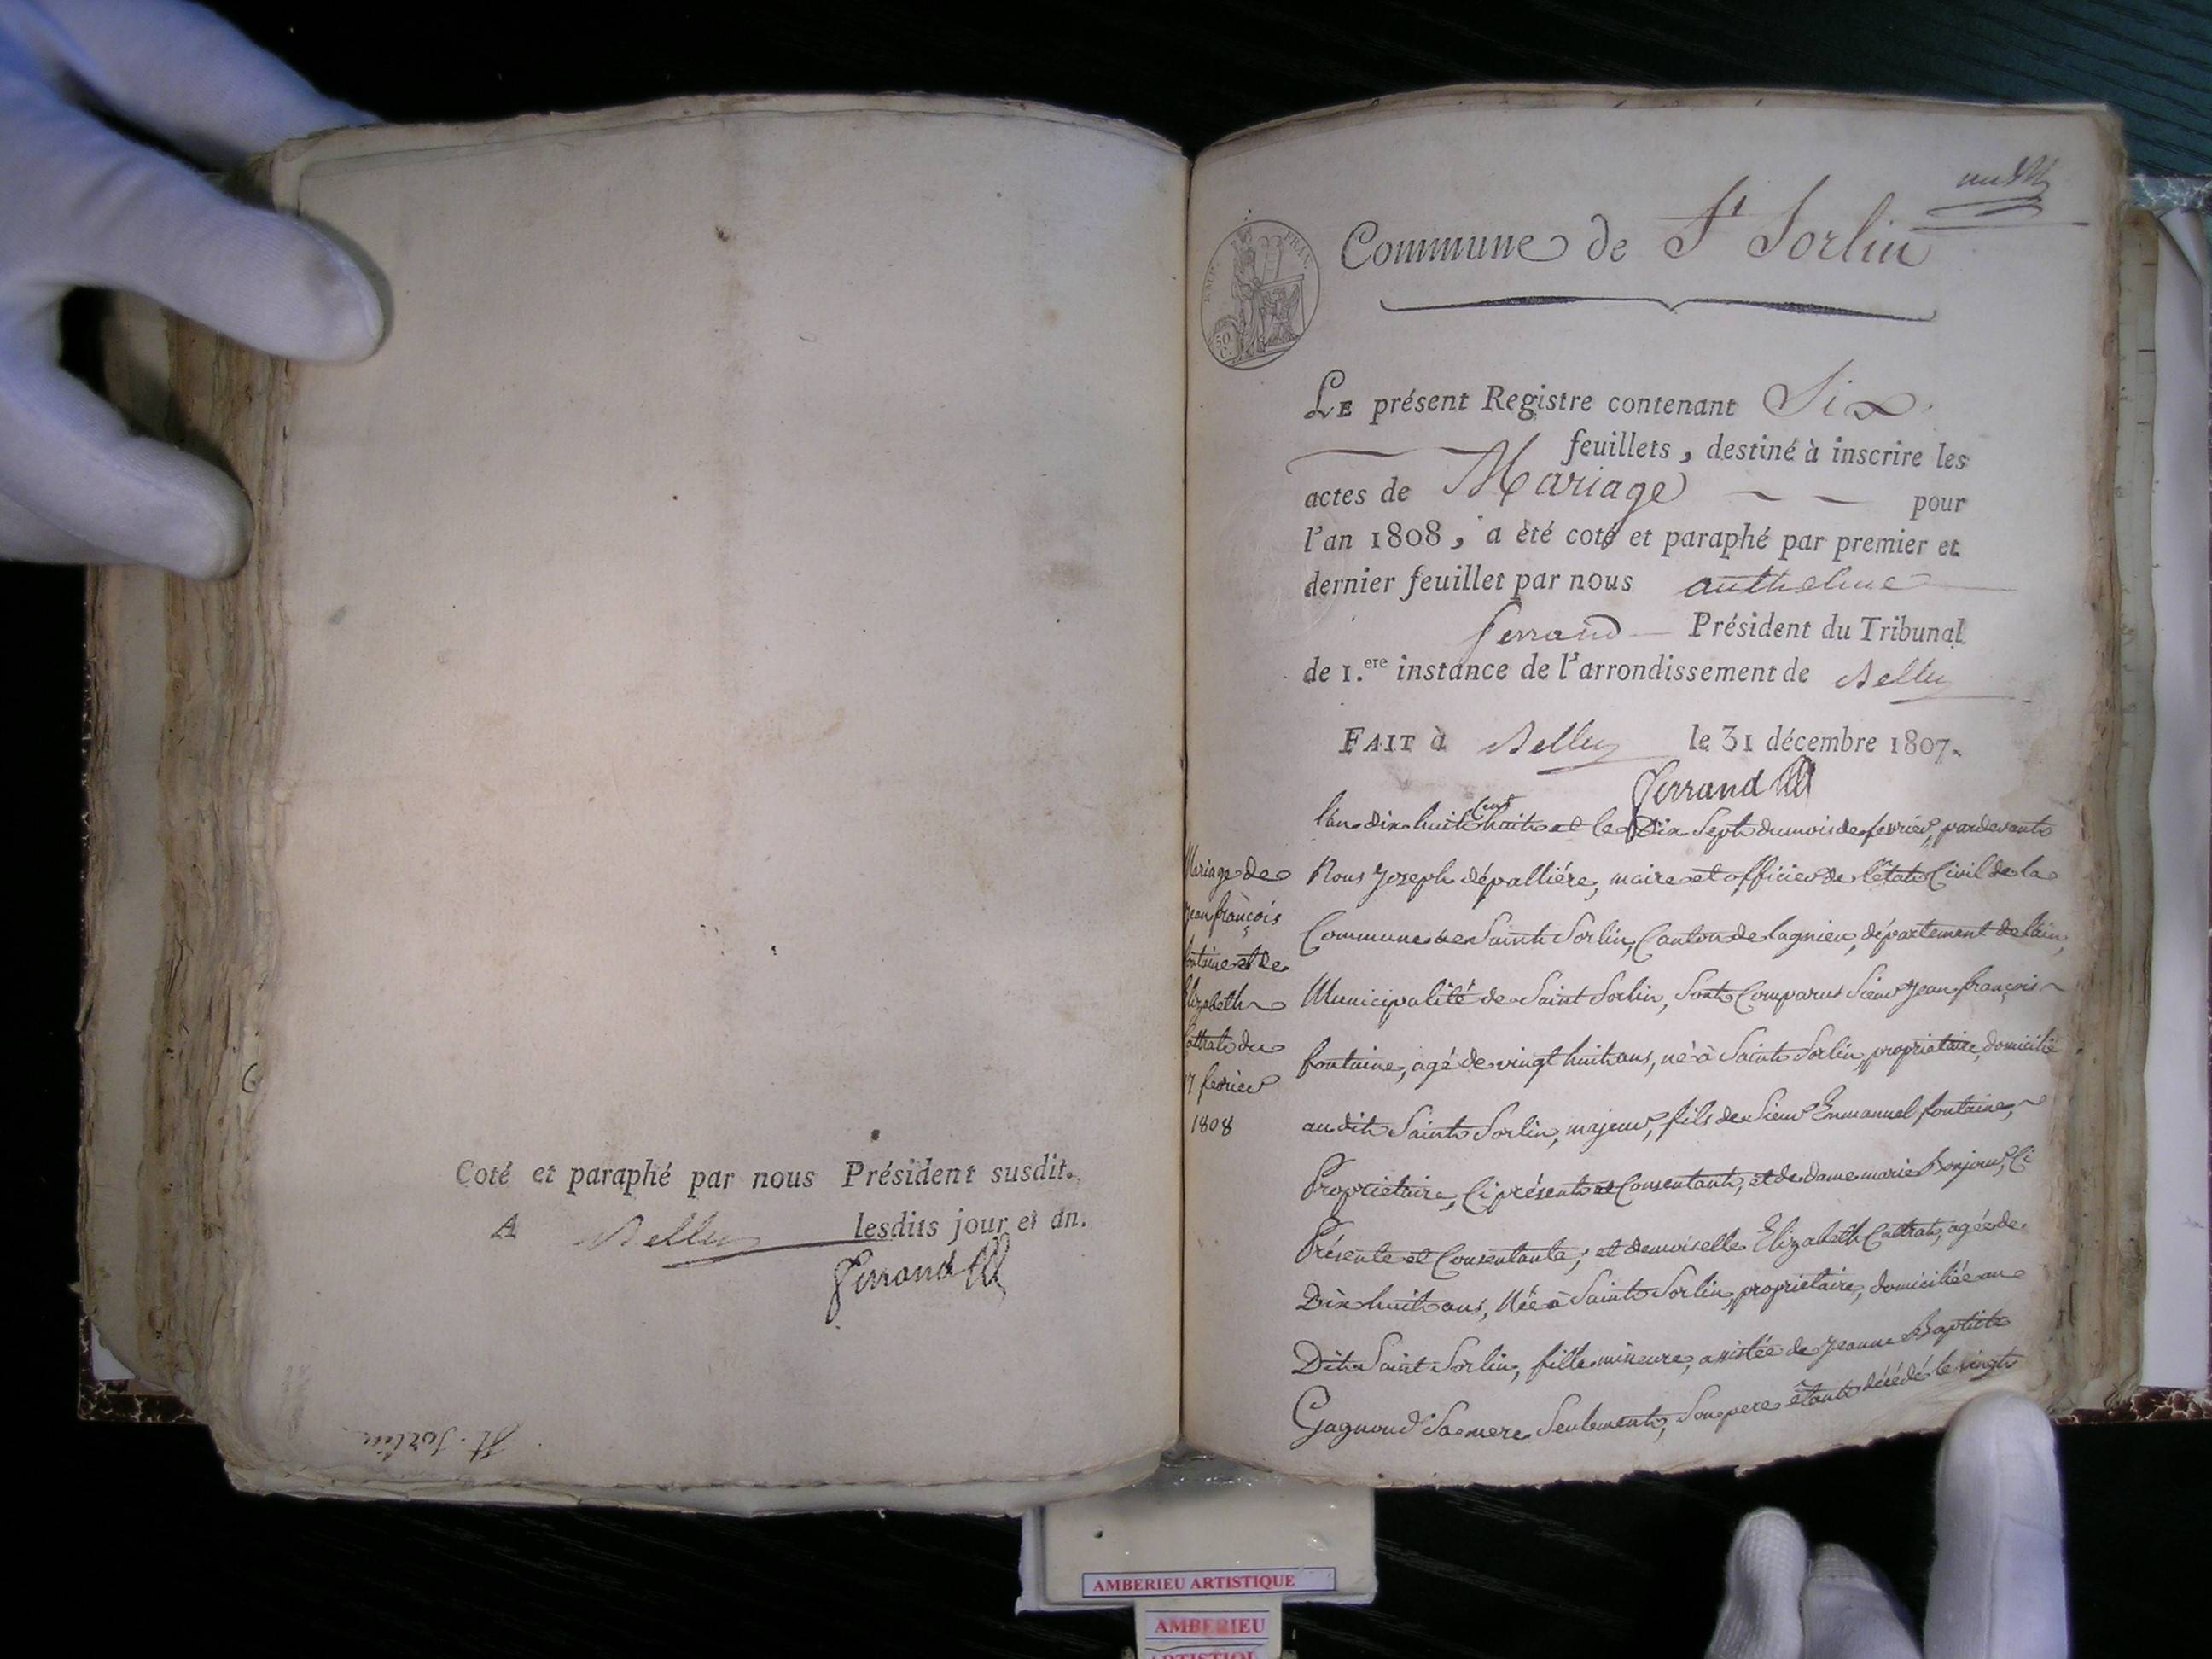 Coté et paraphé par nous Président susdit.
A Belley lesdits jour et an.
Ferrand
St. Sorlin
Commune de St Sorlin
EMP. FRAN.
50 C.
LE présent Registre contenant Six
feuillets, destiné à inscrire les
actes de Mariage pour
l'an 1808, a été coté et paraphé par premier et
dernier feuillet par nous anthelme
ferrand Président du Tribunal
de 1.ere instance de l'arrondissement de Belley
FAIT à Belley le 31 décembre 1807.
Ferrand
Mariage de
jean françois
fontaine et de
Elizabeth
Cattrat du
17 fevrier
1808
l'an dix huit Cent huit et le Dix Sept du mois de fevrier, pardevant
Nous Joseph dépalliére, maire et officier de l'état Civil de la
Commune de Saint Sorlin, Canton de lagnieu, département de l'ain,
Municipalité de Saint Sorlin, Sont Comparus Sieur jean françois
fontaine, agé de vingt huit ans, né à Saint Sorlin, propriétaire, domicilié
audit Saint Sorlin, majeur, fils de Sieur Emmanuel fontaine,
Propriétaire, Ci présent et Consentant, et de dame marie Bonjour, Ci
Présente et Consentante; et demoiselle Elizabeth Cattrat, agée de
Dix huit ans, Née à Saint Sorlin, propriétaire, domiciliée au
Dit Saint Sorlin, fille mineure, assistée de jeanne Baptiste
Gagnoud Sa mere Seulement, Son pere étant décédé le vingt
AMBERIEU ARTISTIQUE
AMBERIEU
ARTISTIQUE